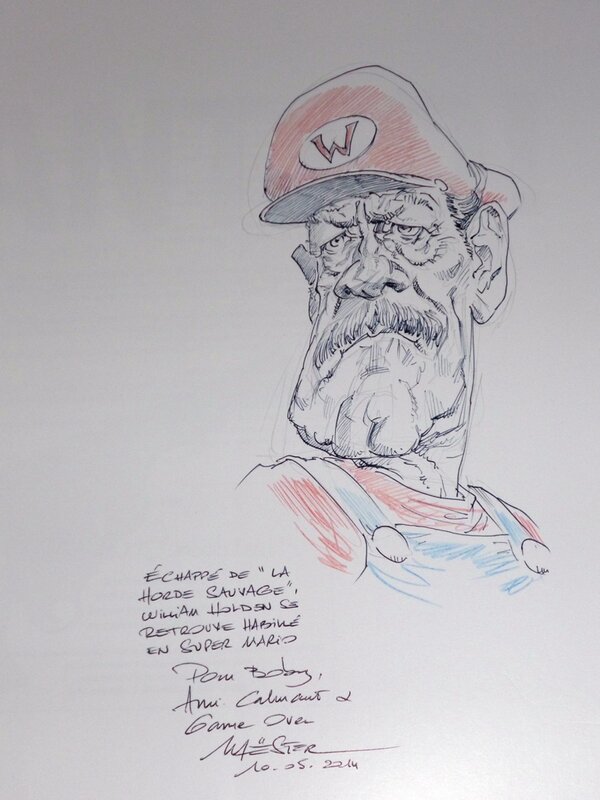 W
ÉCHAPPÉ DE "LA
HORDE SAUVAGE",
WILLIAM HOLDEN SE
RETROUVE HABILLÉ
EN SUPER MARIO
Pour Boboy,
Ami Calmant &
Game Over
MAËSTER
10.05.2214